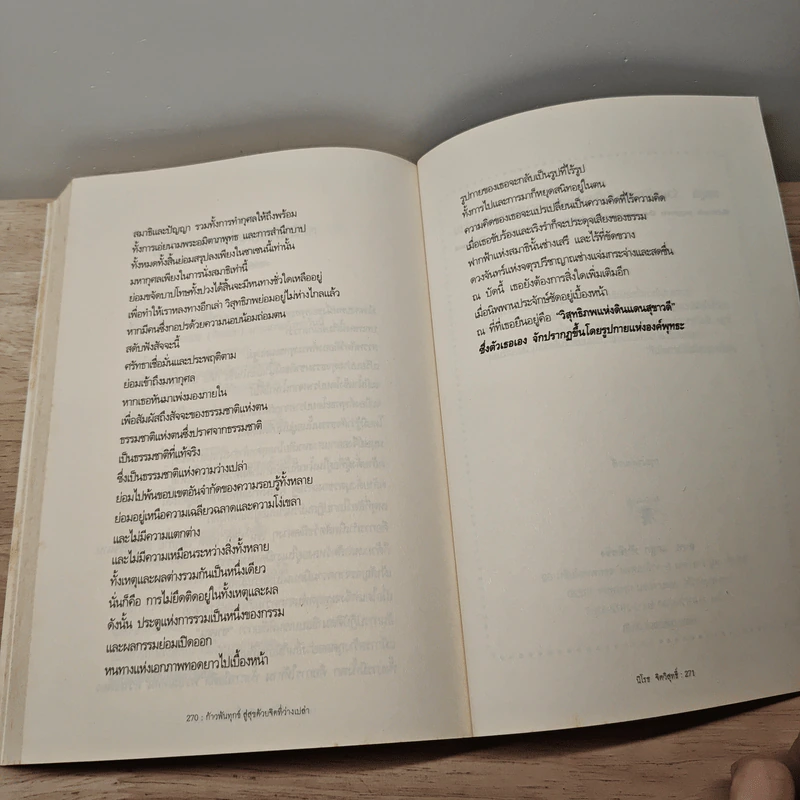 สมาธิและปัญญา รวมทั้งการทำกุศลให้ถึงพร้อม
ทั้งการเอ่ยนามพระอมิตาภพุทธ และการสำนึกบาป
ทั้งหมดทั้งสิ้นย่อมสรุปลงเพียงในซาเซนนี้เท่านั้น
มหากุศลเพียงในการนั่งสมาธิเท่านี้
ย่อมขจัดบาปโทษทั้งปวงได้สิ้นจะมีหนทางชั่วใดเหลืออยู่
เพื่อทำให้เราหลงทางอีกเล่า วิสุทธิภพย่อมอยู่ไม่ห่างไกลแล้ว
หากมีคนซึ่งกอปรด้วยความนอบน้อมถ่อมตน
สดับฟังสัจจะนี้
ศรัทธาเชื่อมั่นและประพฤติตาม
ย่อมเข้าถึงมหากุศล
หากเธอหันมาเพ่งมองภายใน
เพื่อสัมผัสถึงสัจจะของธรรมชาติแห่งตน
ธรรมชาติแห่งตนซึ่งปราศจากธรรมชาติ
เป็นธรรมชาติที่แท้จริง
ซึ่งเป็นธรรมชาติแห่งความว่างเปล่า
ย่อมไปพ้นขอบเขตอันจำกัดของความรอบรู้ทั้งหลาย
ย่อมอยู่เหนือความเฉลียวฉลาดและความโง่เขลา
และไม่มีความแตกต่าง
และไม่มีความเหมือนระหว่างสิ่งทั้งหลาย
ทั้งเหตุและผลต่างรวมกันเป็นหนึ่งเดียว
นั่นก็คือ การไม่ยึดติดอยู่ในทั้งเหตุและผล
ดังนั้น ประตูแห่งการรวมเป็นหนึ่งของกรรม
และผลกรรมย่อมเปิดออก
หนทางแห่งเอกภาพทอดยาวไปเบื้องหน้า
270 : ก้าวพ้นทุกข์ สู่สุขด้วยจิตที่ว่างเปล่า
รูปกายของเธอจะกลับเป็นรูปที่ไร้รูป
ทั้งการไปและการมาก็หยุดสนิทอยู่ในตน
ความคิดของเธอจะแปรเปลี่ยนเป็นความคิดที่ไร้ความคิด
เมื่อเธอขับร้องและเริงรำก็จะประดุจเสียงของธรรม
ฟากฟ้าแห่งสมาธินั้นช่างเสรี และไร้ที่ขัดขวาง
ดวงจันทร์แห่งจตุรปรีชาญาณช่างแจ่มกระจ่างและสดชื่น
ณ บัดนี้ เธอยังต้องการสิ่งใดเพิ่มเติมอีก
เมื่อนิพพานประจักษ์ชัดอยู่เบื้องหน้า
ณ ที่ที่เธอยืนอยู่คือ “วิสุทธิภพแห่งดินแดนสุขาวดี”
ซึ่งตัวเธอเอง จักปรากฏขึ้นโดยรูปกายแห่งองค์พุทธะ
นิโรธ จิตวิสุทธิ์ : 271